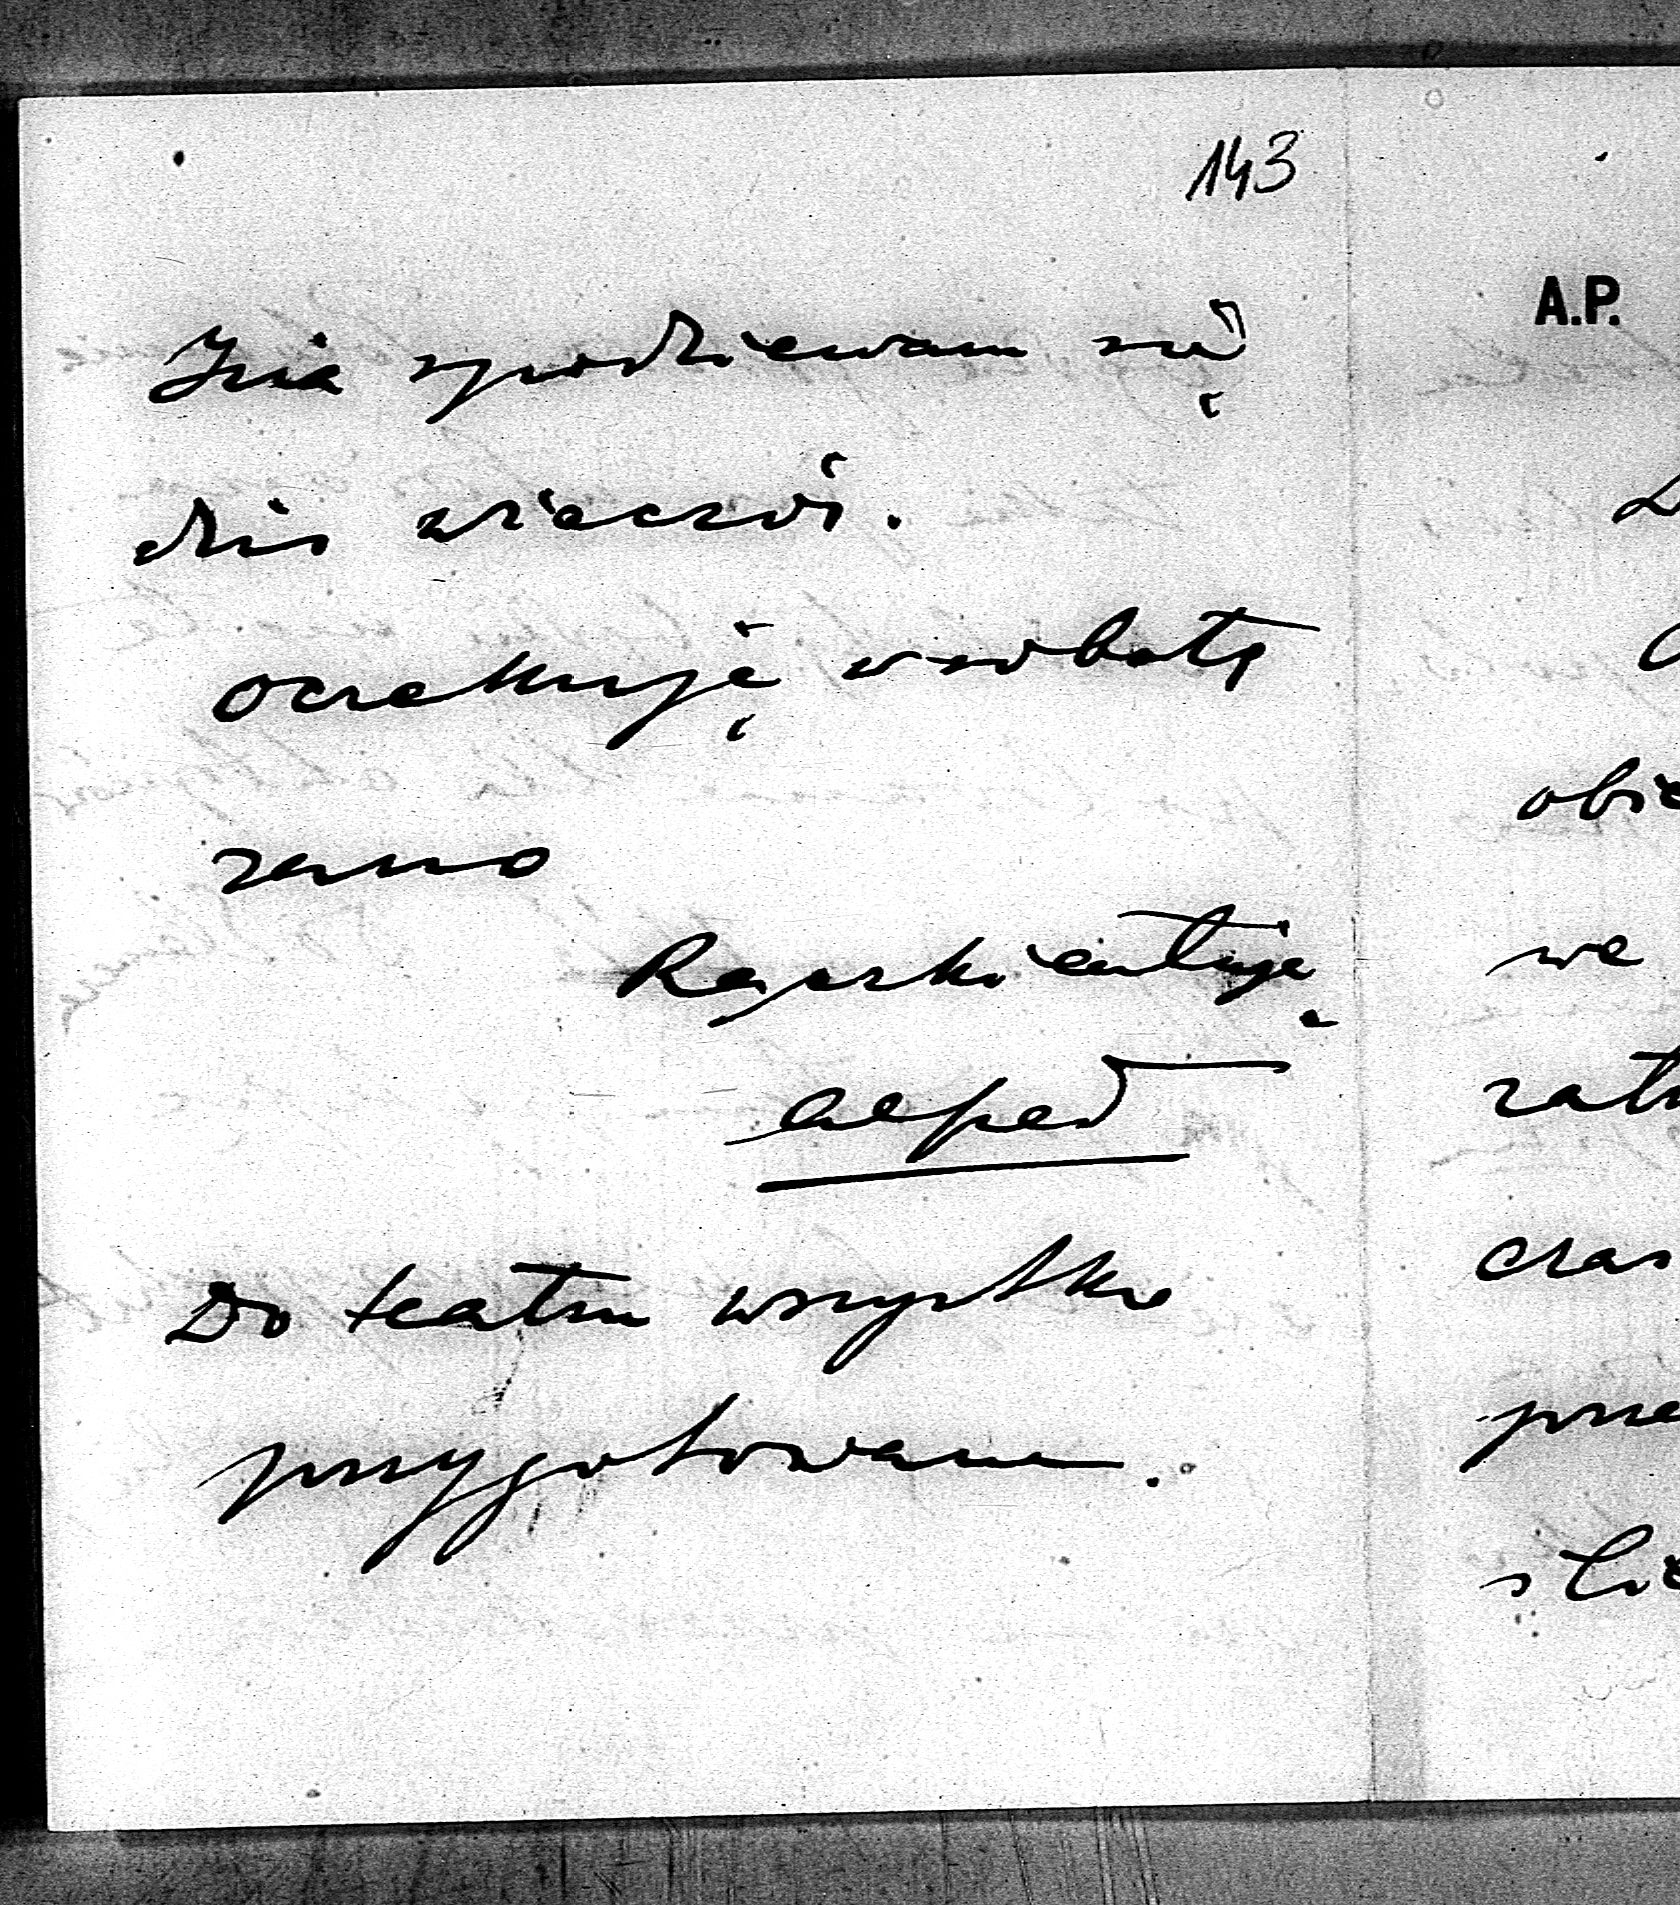 143
spodziewam się
dziś wieczór.
oczekuję w sobotę
rano
Rączki całuję
Alfred
Do teatru wszystko
przygotowane.
A.P.
obie
we
czas
prze